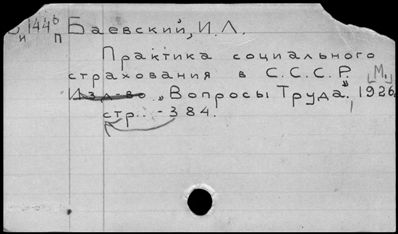 144 б Баевский, И.Л.
и п
Практика социального
страхования в С.С.С.Р. [М.]
Изд-во „Вопросы Труда", 1926.
стр. - 384.